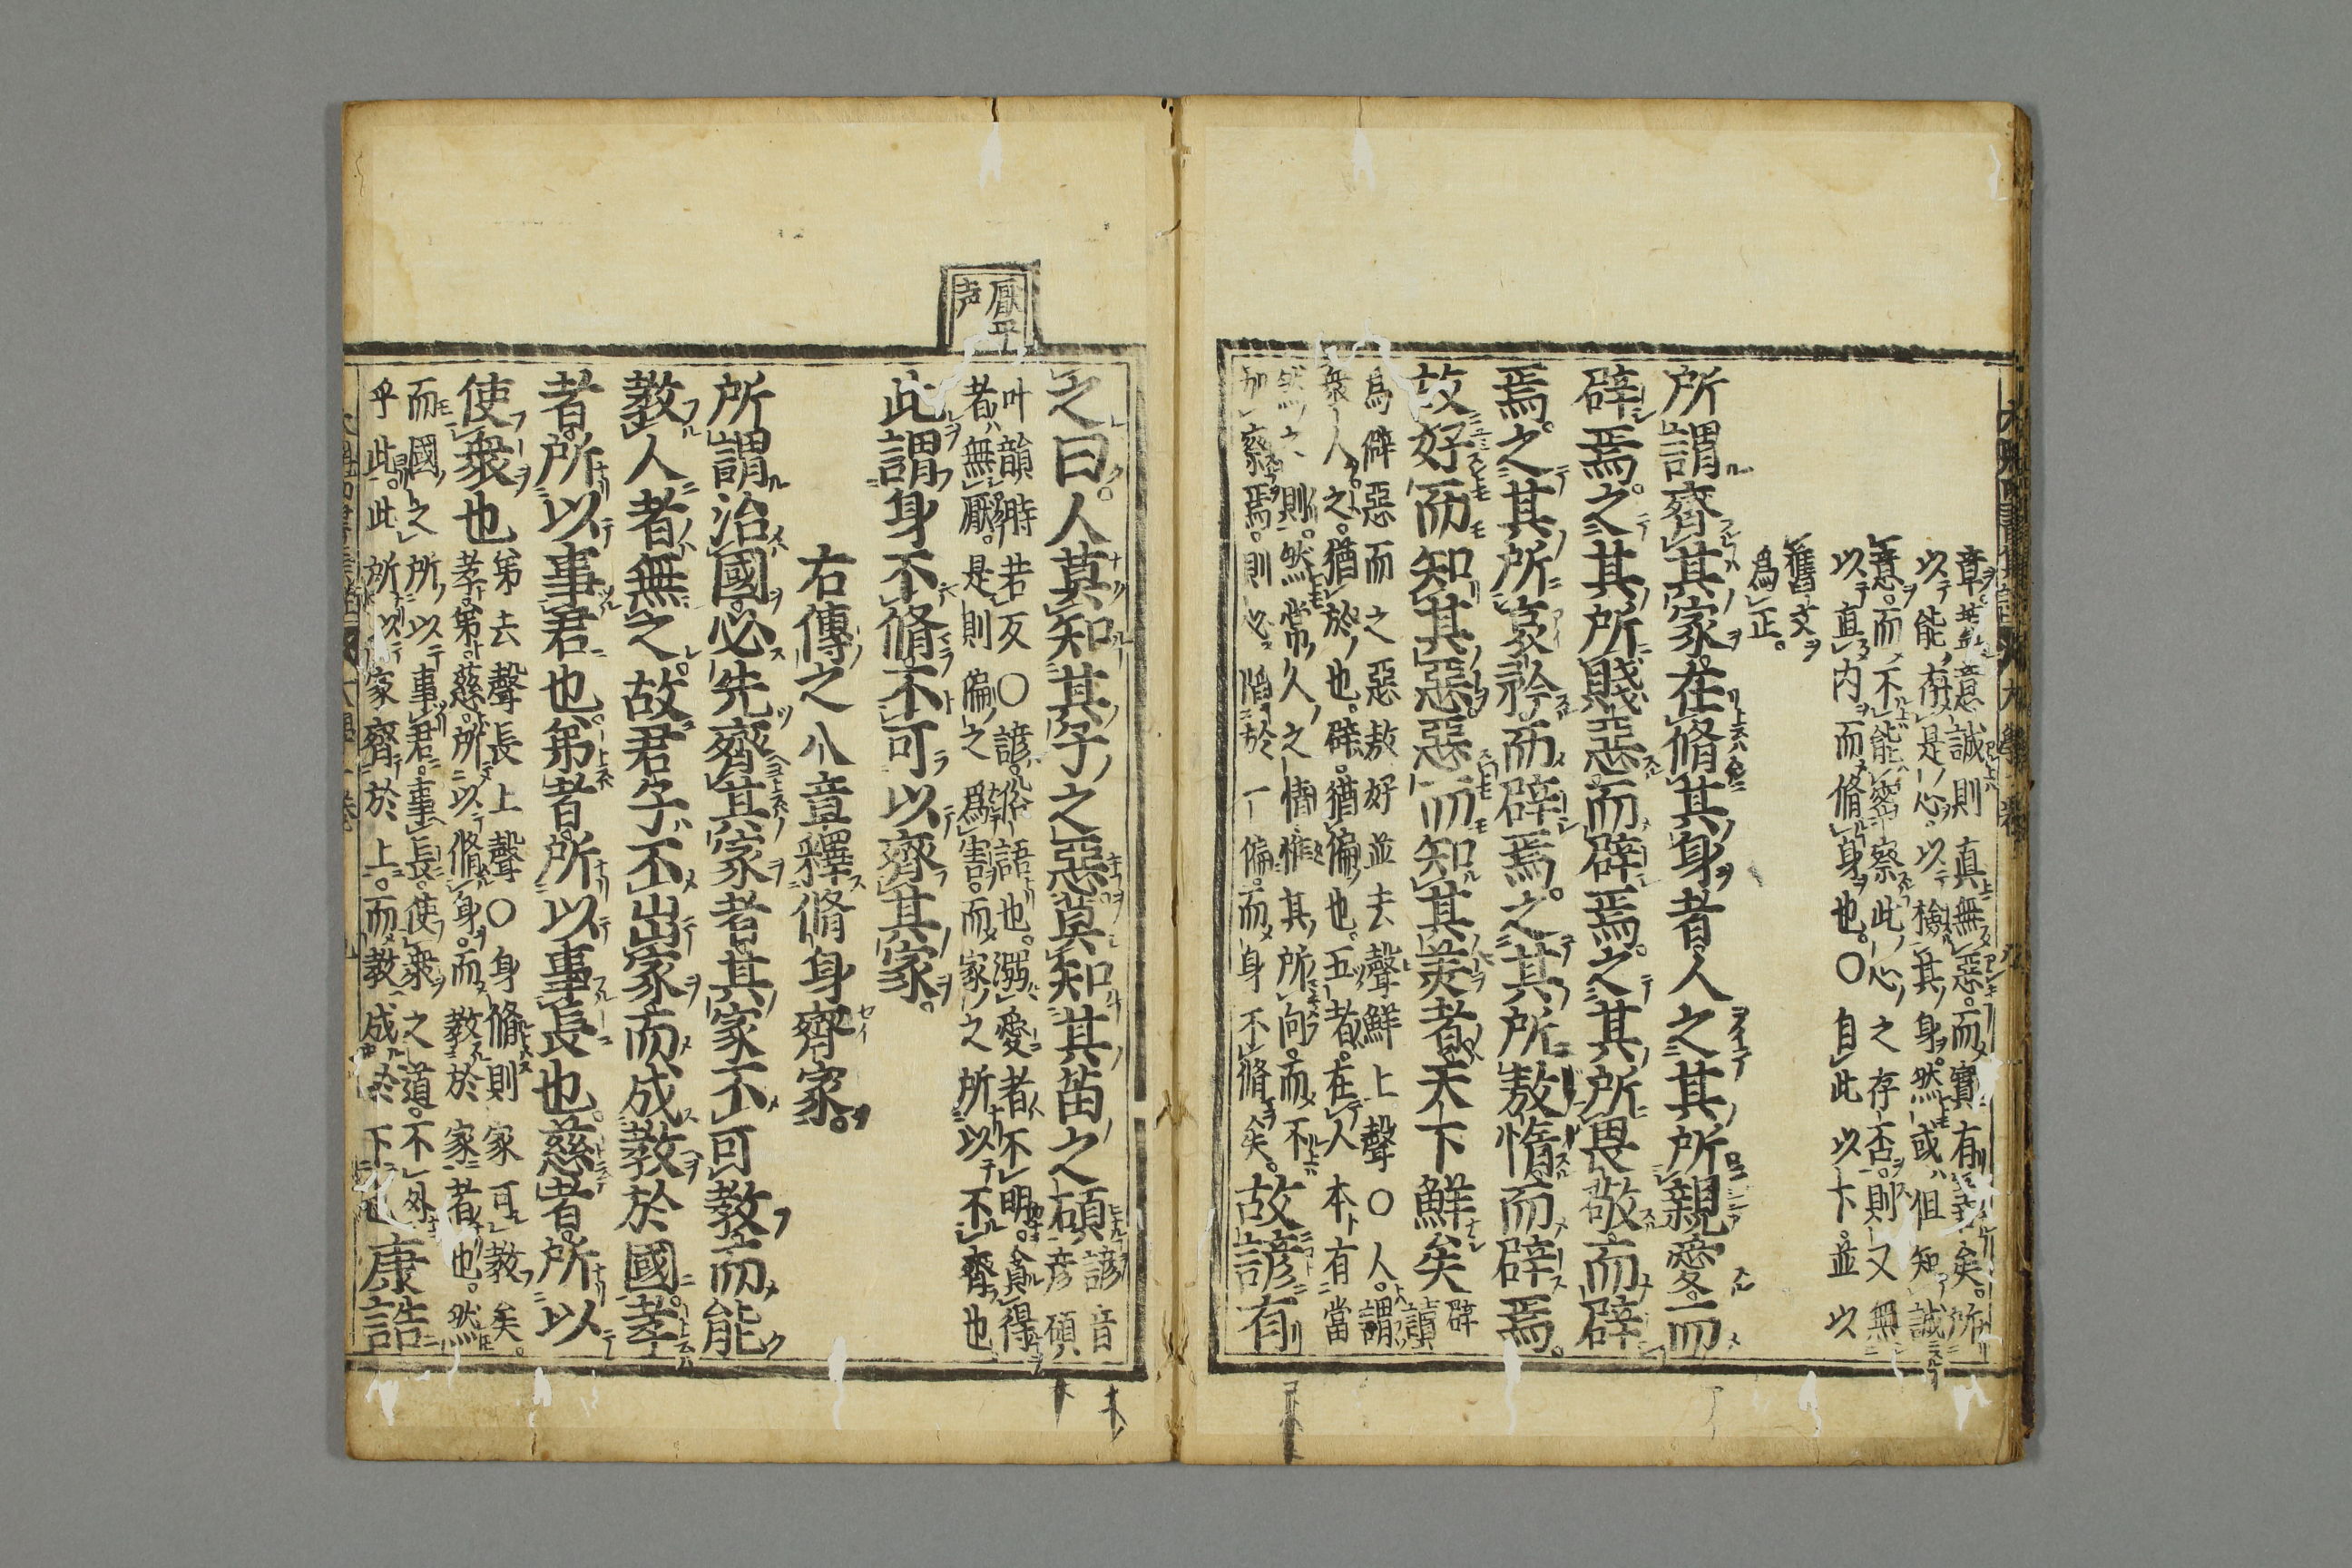 章。蓋意誠則真無惡。而實有善矣。所
以能存是心。以檢其身。然或但知誠
意。而不能密察此心之存否。則又無
以直内而脩身也。○自此以下。並以
舊文
爲正。
所謂齊其家在脩其身者人之其所親愛而
辟焉。之其所賤惡而辟焉。之其所畏敬而辟
焉。之其所哀矜而辟焉。之其所敖惰而辟焉。
故好而知其惡惡而知其美者天下鮮矣
辟讀
爲僻惡而之惡敖好並去聲鮮上聲○人。謂
衆人。之。猶於也。辟。猶偏也。五者。在人本有當
然之則。然常人之情惟其所向。而不
加察焉。則必陷於一偏。而身不脩矣。
故諺有
之曰。人莫知其子之惡莫知其苗之碩
諺音
彦碩
叶韻時若反○諺。俗語也。溺愛者不明。貪得
者無厭。是則偏之爲害。而家之所以不齊也
厭平
声
此謂身不脩不可以齊其家。
右傳之八章釋脩身齊家。
所謂治國必先齊其家者其家不可教而能
教人者無之。故君子不出家而成教於國。孝
者所以事君也。弟者所以事長也。慈者所以
使衆也
弟去聲長上聲○身脩則家可教矣。
孝。弟。慈。所以脩身。而教於家者也。然
而國之所以事君。事長。使衆之道。不外
乎此。此所以家齊於上。而教成於下也
康誥